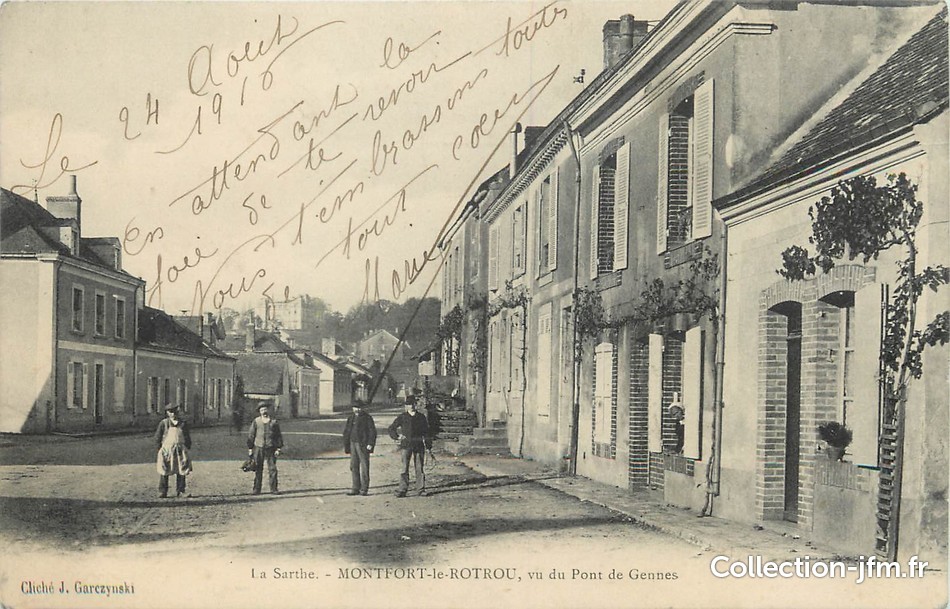 Le 24 Août
1916
En attendant la
joie de te revoir.
Nous t'embrassons toutes
de tout coeur.
La Sarthe. - MONTFORT-le-ROTROU, vu du Pont de Gennes
Cliché J. Garczynski
Collection-jfm.fr